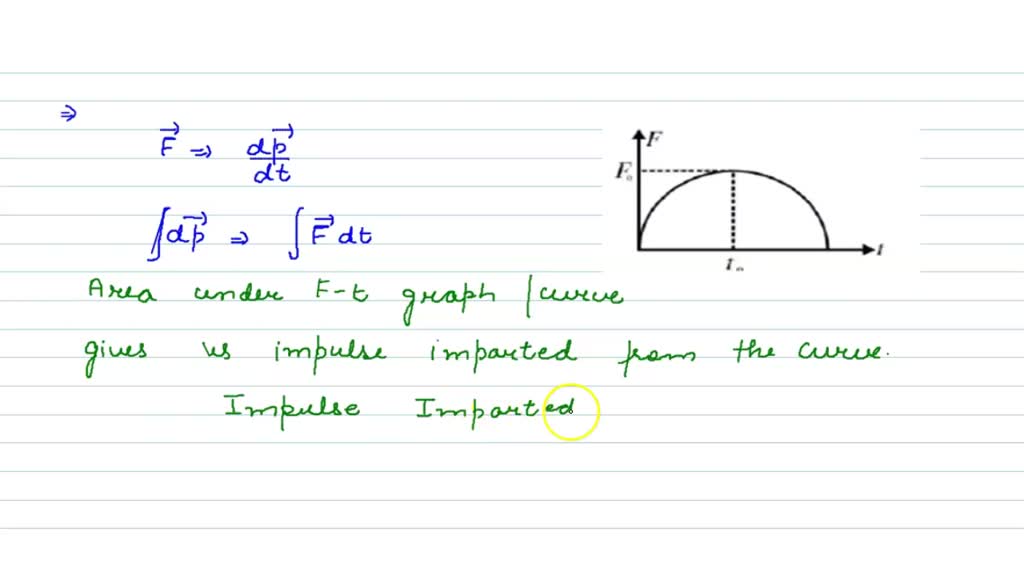 ⇒
F⃗ ⇒ dp⃗/dt
∫dp⃗ ⇒ ∫F⃗ dt
F
F₀
t₀
t
Area under F-t graph / curve
gives us impulse imparted from the curve.
Impulse Imparted